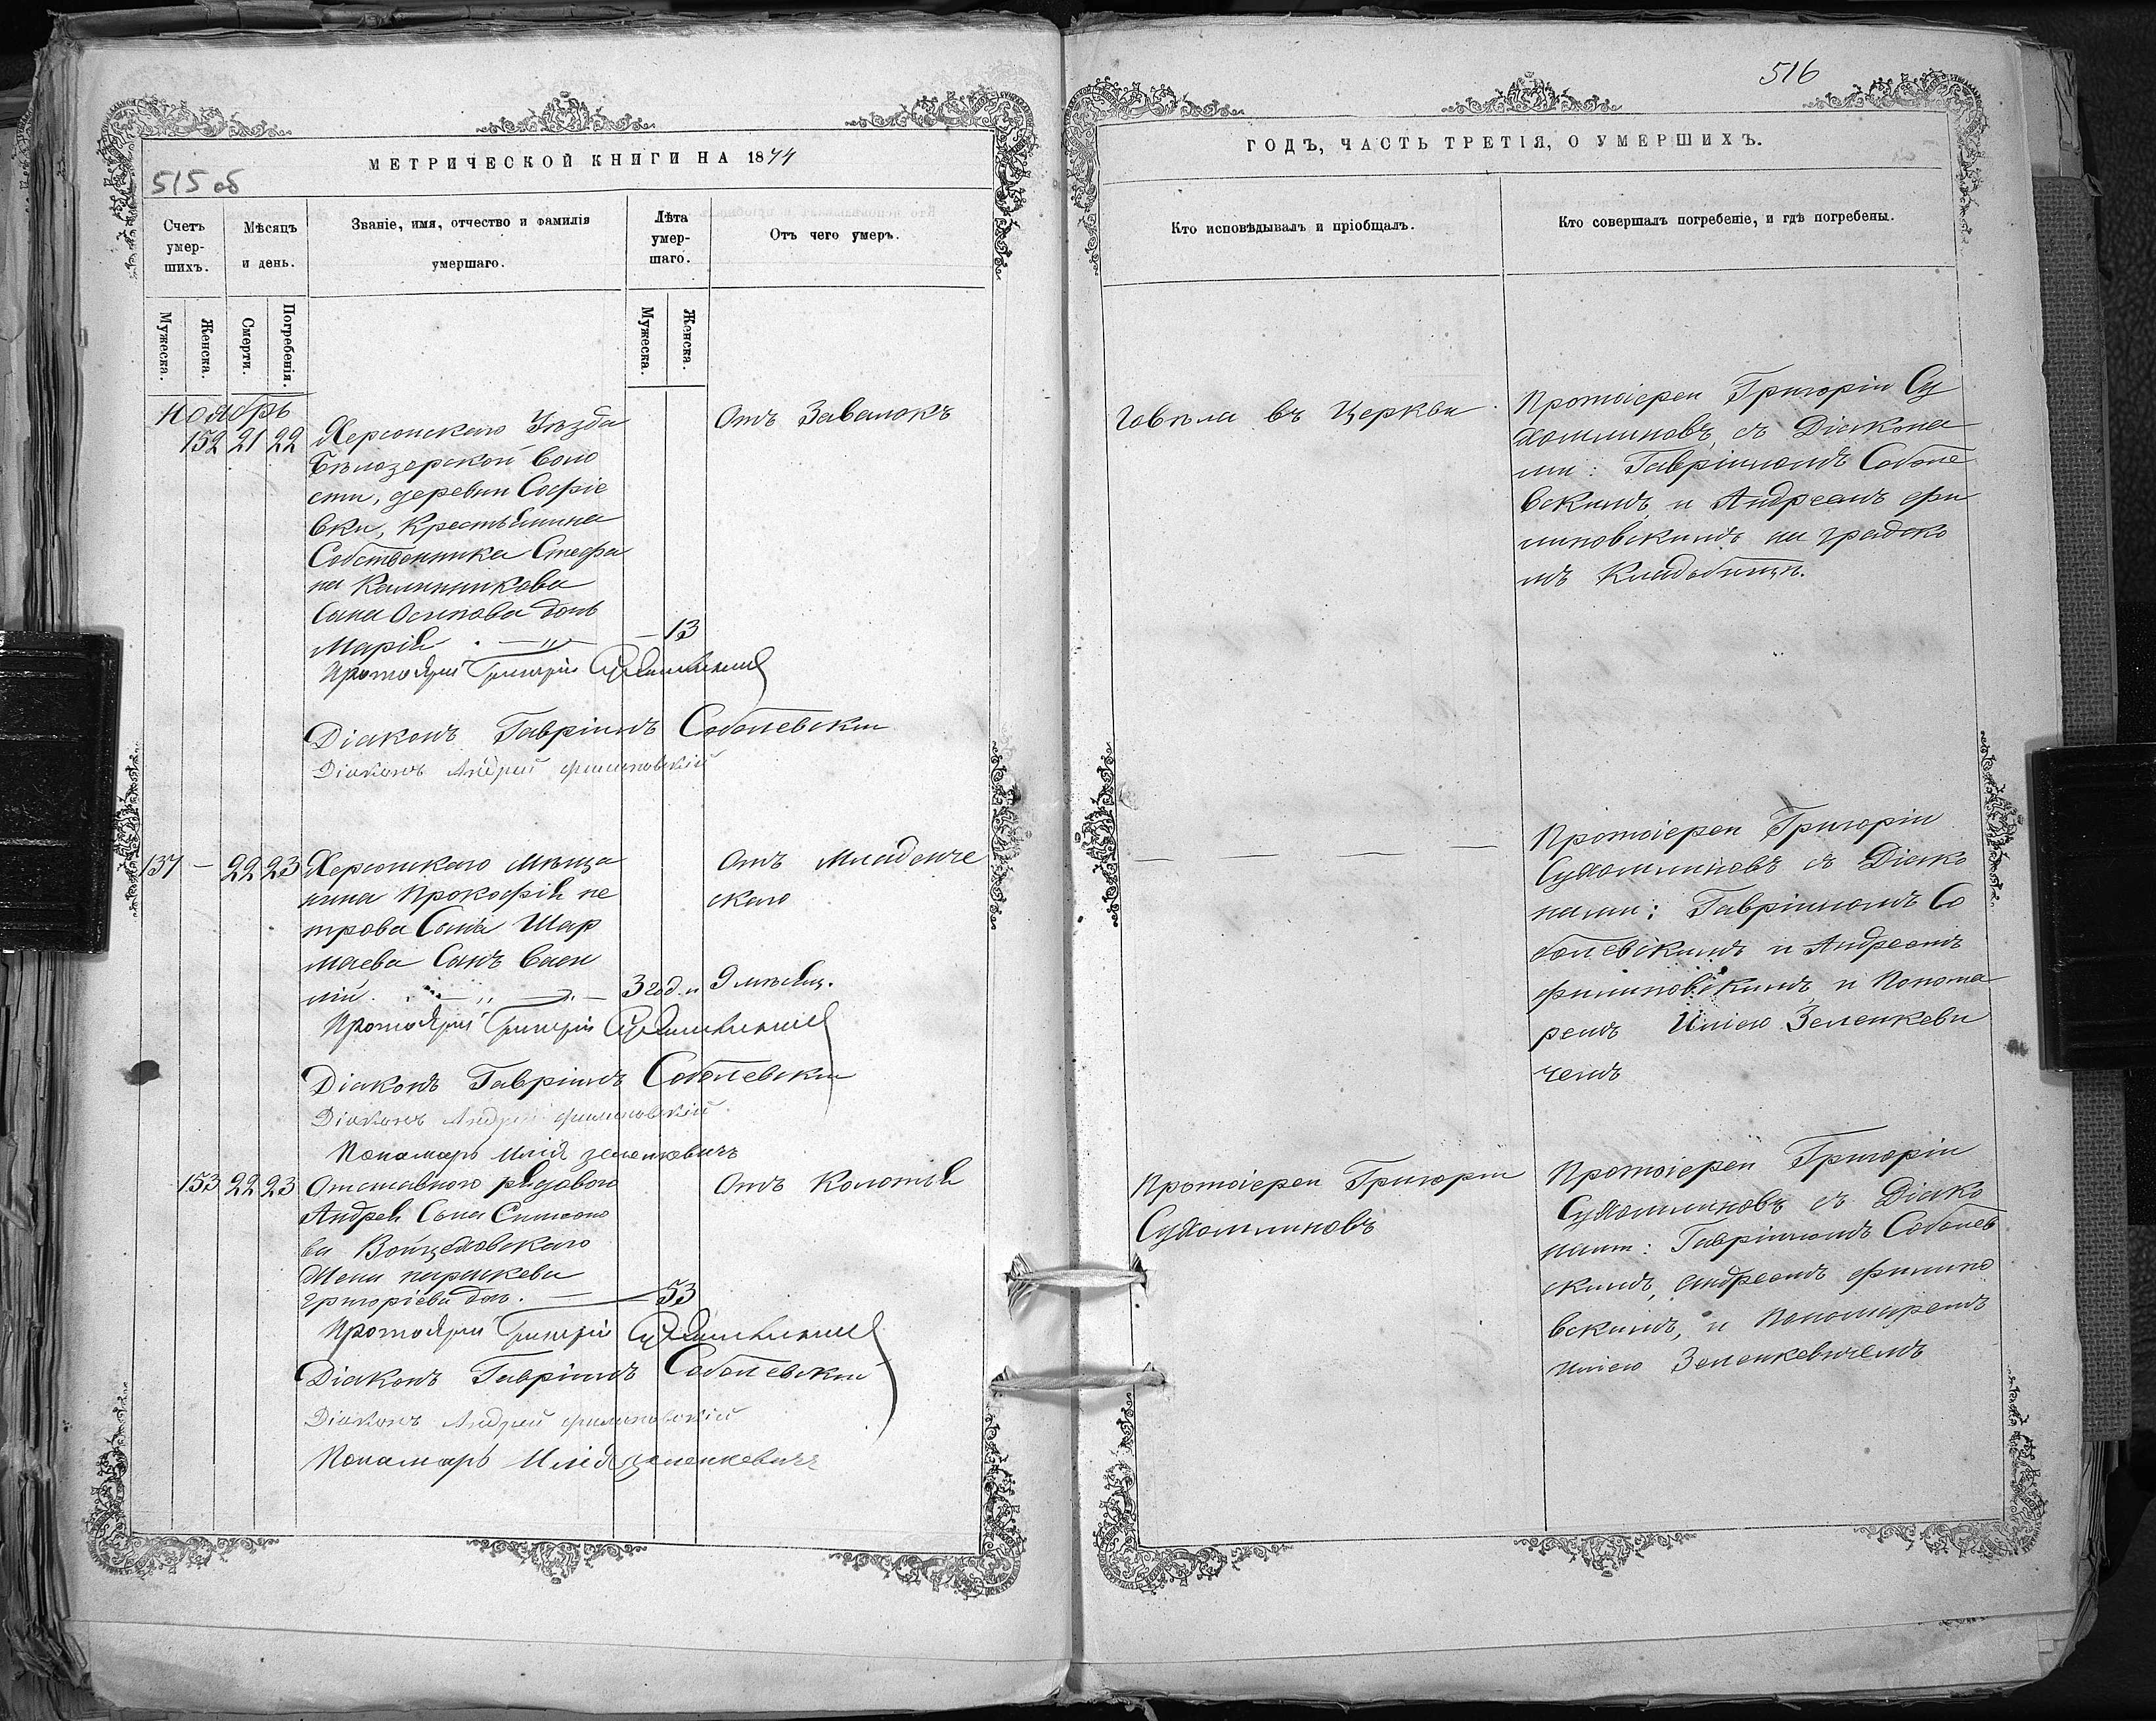 МЕТРИЧЕСКОЙ КНИГИ НА 1874
515 об
Счетъ умер-шихъ.
Мѣсяцъ и день.
Званіе, имя, отчество и фамилія умершаго.
Лѣта умер-шаго.
Отъ чего умеръ.
Мужеска.
Женска.
Смерти.
Погребенія.
Мужеска.
Женска.
Ноябрь
152 21 22
Херсонскаго Уѣзда
Бѣлозерской Воло
сти, деревни Софіе
вки, Крестьянина
Собственника Стефа
на Калинникова
Сына Осипова дочь
Марія — 13
Отъ Завалокъ
Протоіерей Григорій Сухомлиновъ
Діаконъ Гавріилъ Соболевскій
Діаконъ Андрей Филиповскій
137 — 22 23
Херсонскаго мѣща
нина Прокофія пе
трова Сына Шар
маева Сынъ Васи
лій. — 3 год. и 9 мѣсяц.
Отъ Младенче
скаго
Протоіерей Григорій Сухомлиновъ
Діаконъ Гавріилъ Соболевскій
Діаконъ Андрей Филиповскій
Понамарь Илія Зеленкевичъ
153 22 23
Отставного рядового
Андрея Сына Симоно
ва Войцеховскаго
Жена параскева
григоріева доч. — 53
Отъ Колотья
Протоіерей Григорій Сухомлиновъ
Діаконъ Гавріилъ Соболевскій
Діаконъ Андрей Филиповскій
Понамарь Илія Зеленкевичъ
516
ГОДЪ, ЧАСТЬ ТРЕТІЯ, О УМЕРШИХЪ.
Кто исповѣдывалъ и пріобщалъ.
Кто совершалъ погребеніе, и гдѣ погребены.
Говѣла въ Церкви
Протоіереи Григоріи Су
хомлиновъ съ Діакона
ми: Гавріиломъ Соболе
вскимъ и Андреемъ фи
липовскимъ на градско
мъ Кладбищи.
— — — —
Протоіереи Григоріи
Сухомлиновъ съ Діако
нами; Гавріиломъ Со
болевскимъ и Андреемъ
филиповскимъ и Понома
ремъ Иліею Зеленкеви
чемъ
Протоіереи Григоріи
Сухомлиновъ
Протоіереи Григоріи
Сухомлиновъ съ Діако
нами: Гавріиломъ Соболев
скимъ, андреемъ филипо
вскимъ, и Пономаремъ
Иліею Зеленкевичемъ